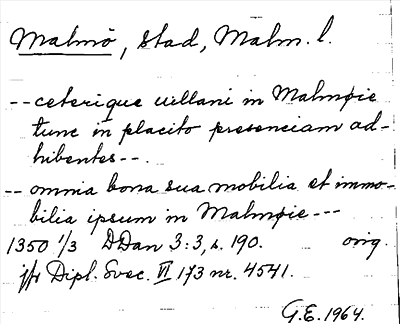 Malmö, stad, Malm. l.
-- ceterique uillani in Malmøie
tunc in placito presenciam ad-
hibentes --.
-- omnia bona sua mobilia et immo-
bilia ipsum in Malmøie ---
1350 1/3 DDan 3:3, s. 190. orig.
jfr Dipl. Svec. VI 173 nr. 4541.
G.E. 1964.